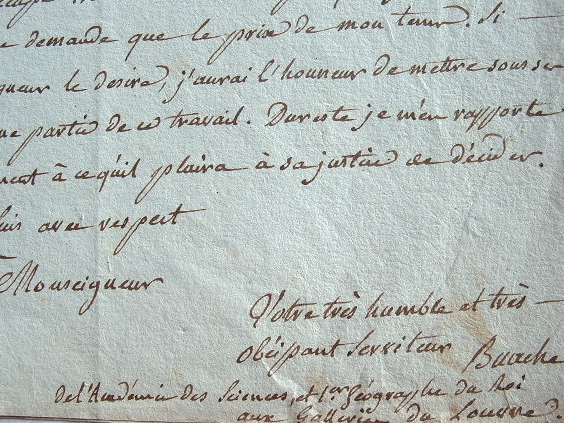 demande que le prix de mon tems. Si —
gneur le desire, j'aurai l'honneur de mettre sous ses
ne partie de ce travail. Dureste je m'en rapporte
ment à ce qu'il plaira à sa justice de décider.
suis avec respect
Monseigneur
Votre très humble et très —
obéissant serviteur Buache
de l'Académie des Sciences, et 1.er Géographe du Roi
aux Galleries du Louvre.